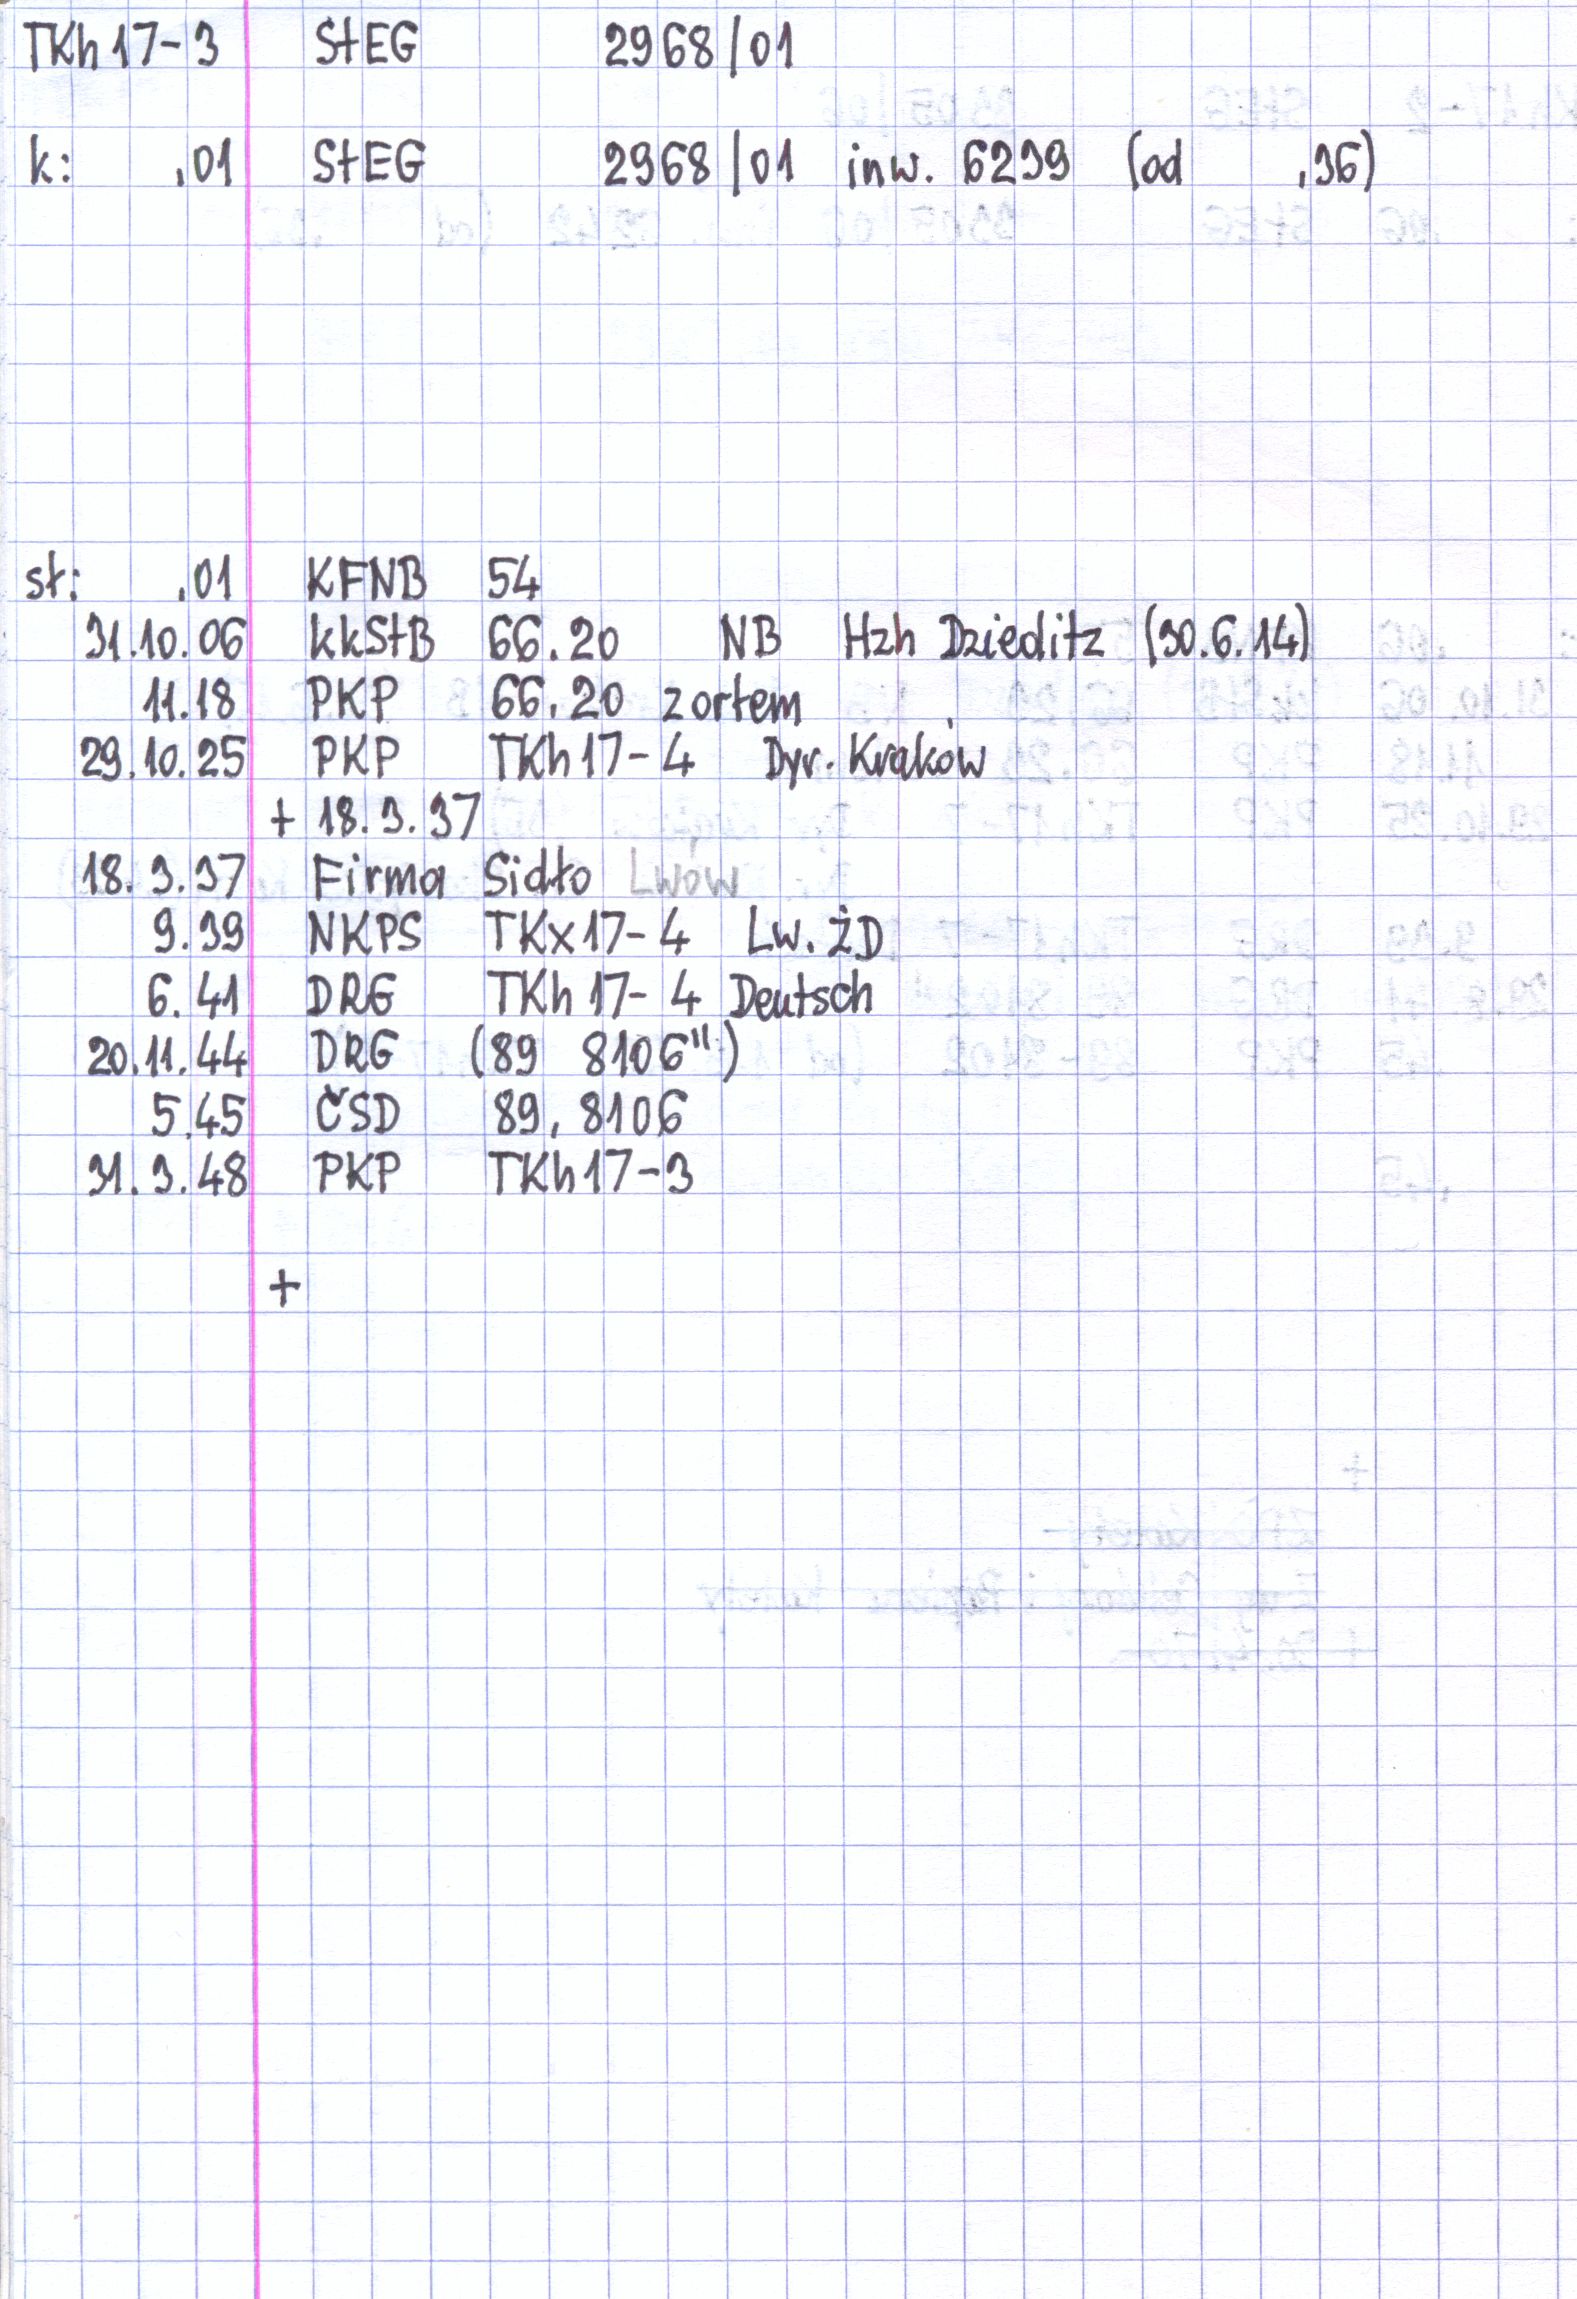 TKh17-3 StEG 2968/01
k: .01 StEG 2968/01 inw. 6239 (od .36)
st: .01 KFNB 54
31.10.06 kkStB 66.20 NB Hzh Dzieditz (30.6.14)
11.18 PKP 66.20 z ortem
29.10.25 PKP TKh17-4 Dyr. Kraków
+ 18.3.37
18.3.37 Firma Sidło Lwow
9.39 NKPS TKx17-4 Lw. ŻD
6.41 DRG TKh17-4 Deutsch
20.11.44 DRG (89 8106")
5.45 ČSD 89,8106
31.3.48 PKP TKh17-3
+